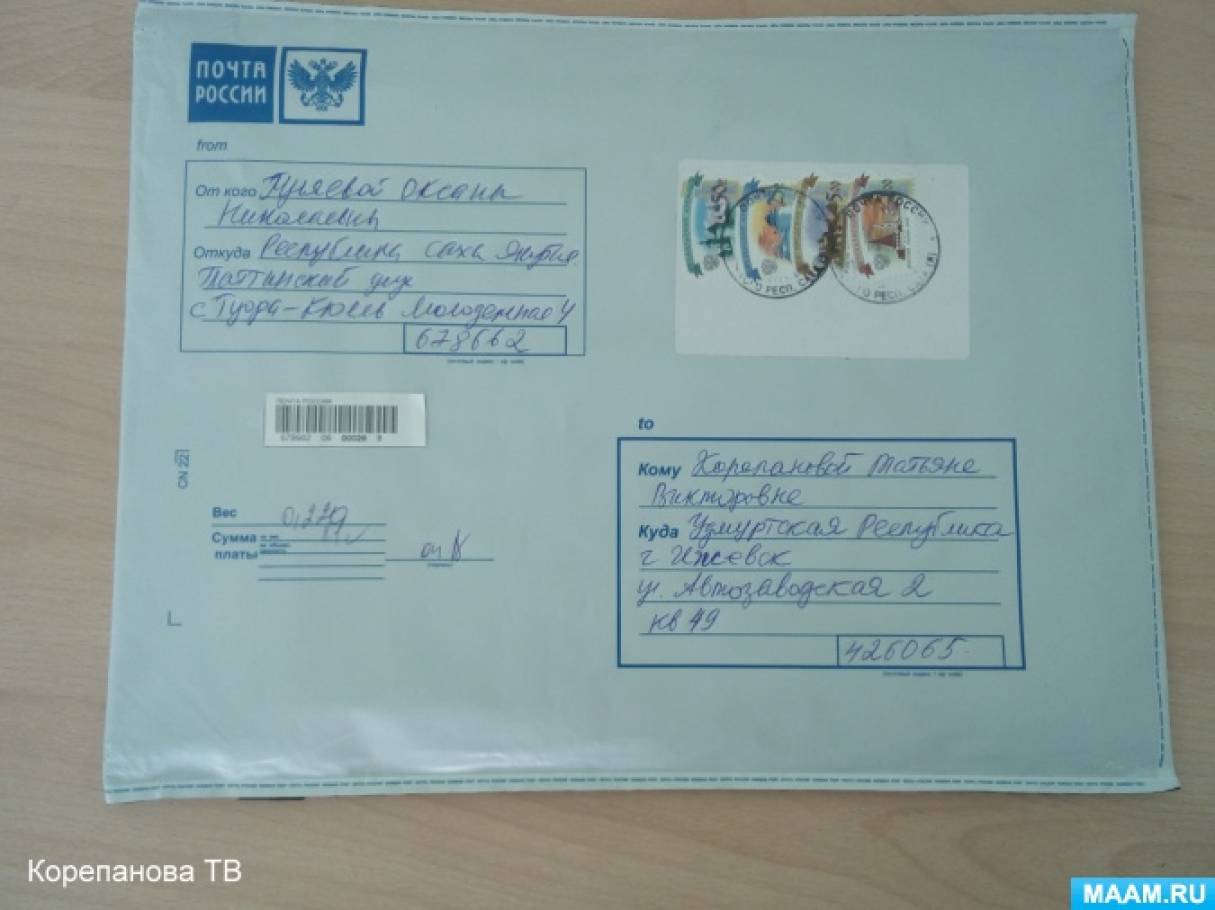 ПОЧТА
РОССИИ
from
От кого Гуляевой Оксаны
Николаевны
Откуда Республика Саха Якутия
Таттинский улус
с Туора-Кюель Молодежная 4
678662
ПОЧТА РОССИИ
678662 06 00028 9
CN 22
Вес 0,279
Сумма
платы
to
Кому Корепановой Татьяне
Викторовне
Куда Удмуртская Республика
г Ижевск
ул. Автозаводская 2
кв 49
426065
ПОЧТА РОССИИ
РЕСП. САХА (Я)
Корепанова ТВ
MAAM.RU